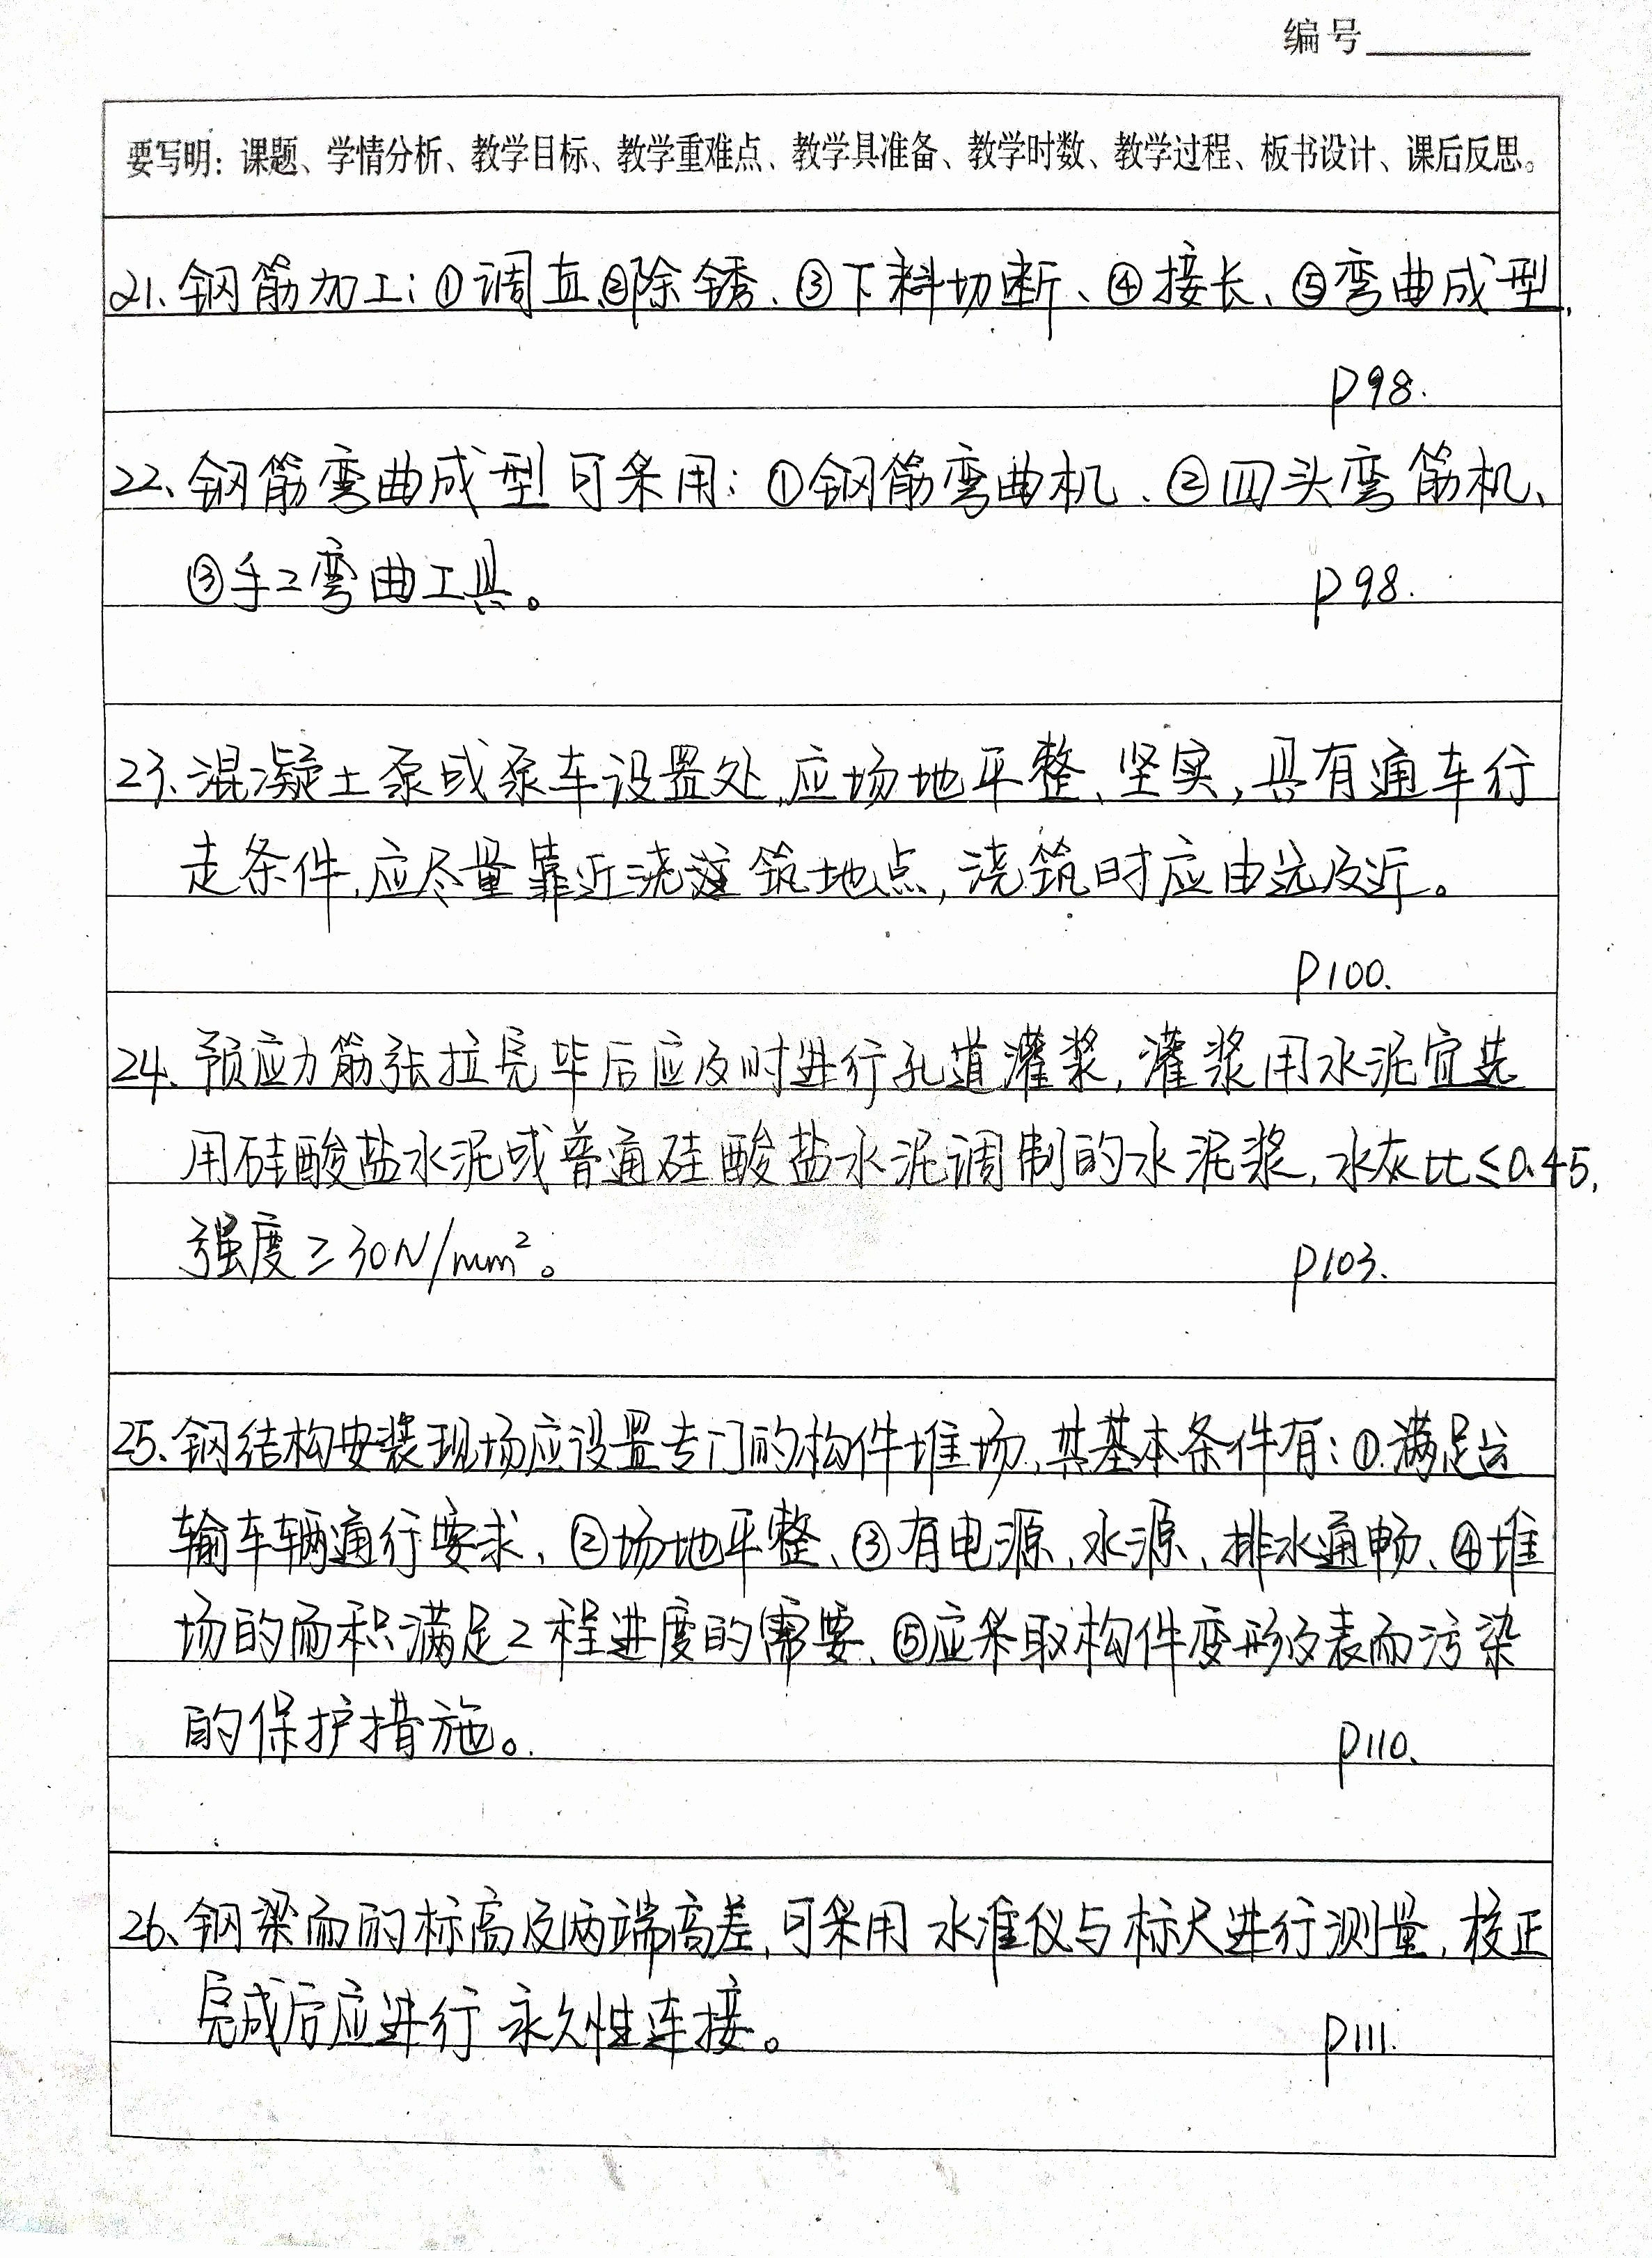 编号
要写明：课题、学情分析、教学目标、教学重难点、教学具准备、教学时数、教学过程、板书设计、课后反思。
21、钢筋加工：①调直、②除锈、③下料切断、④接长、⑤弯曲成型，
P98.
22、钢筋弯曲成型可采用：①钢筋弯曲机、②四头弯筋机、
③手工弯曲工具。 P98.
23、混凝土泵或泵车设置处，应场地平整、坚实，具有通车行
走条件，应尽量靠近浇筑地点，浇筑时应由远及近。
P100.
24、预应力筋张拉完毕后应及时进行孔道灌浆，灌浆用水泥宜选
用硅酸盐水泥或普通硅酸盐水泥调制的水泥浆，水灰比≤0.45，
强度≥30N/mm²。 P103.
25、钢结构安装现场应设置专门的构件堆场，其基本条件有：①满足运
输车辆通行要求、②场地平整、③有电源、水源、排水通畅、④堆
场的面积满足工程进度的需要、⑤应采取构件变形及表面污染
的保护措施。 P110.
26、钢梁面的标高及两端高差，可采用水准仪与标尺进行测量，校正
完成后应进行永久性连接。 P111.